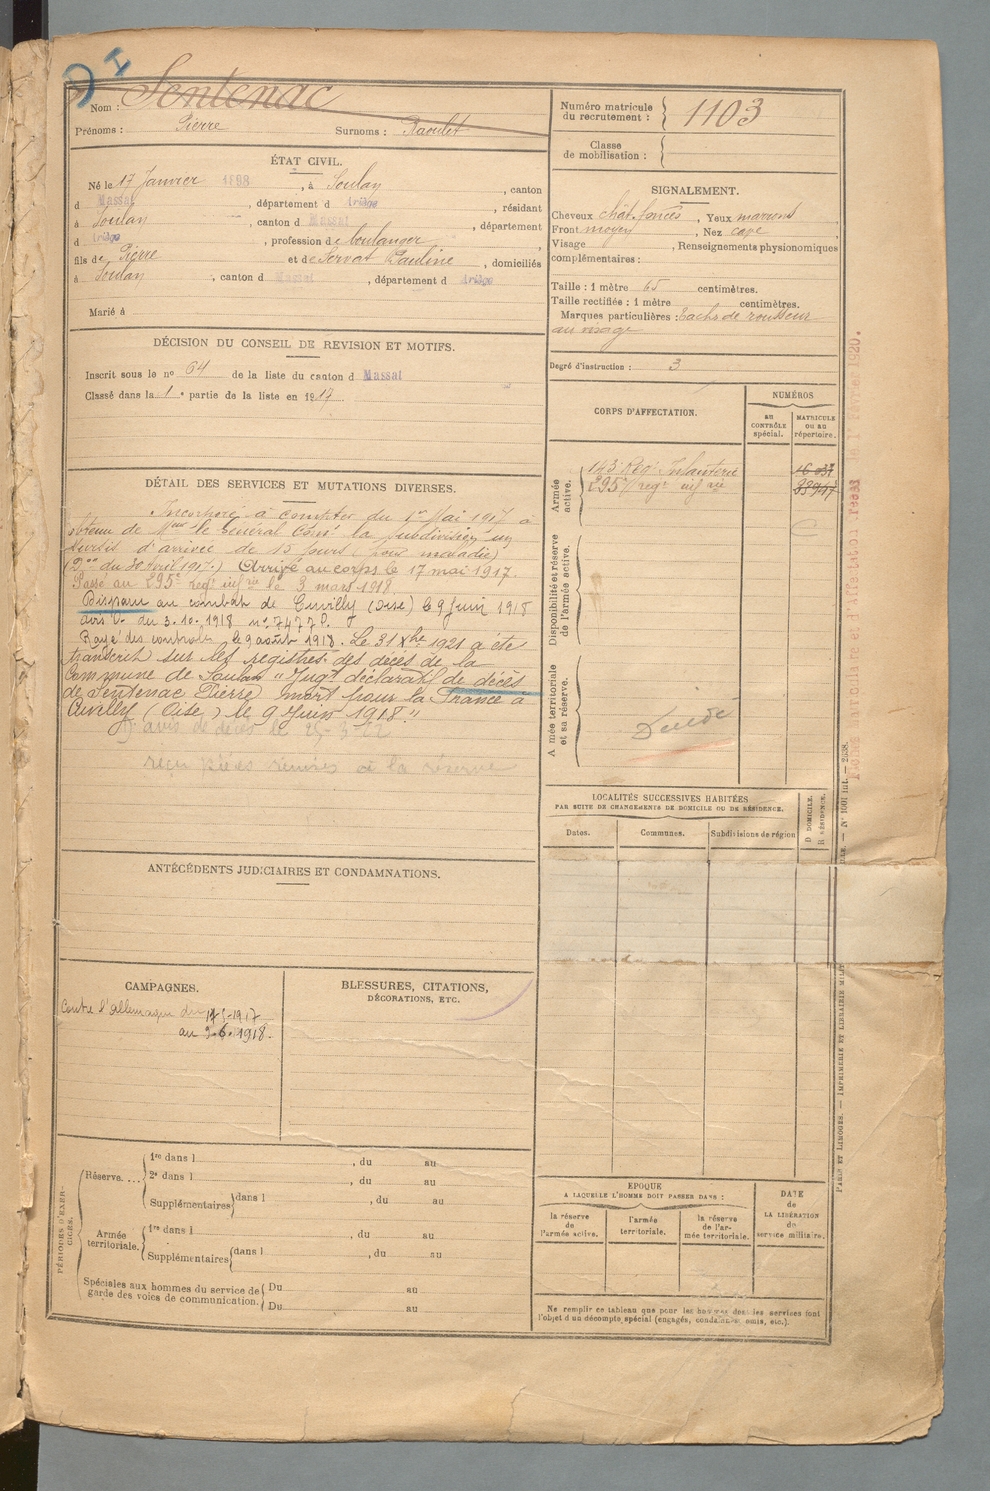 D I
Nom : Sentenac
Prénoms : Pierre Surnoms : Raoulet
Numéro matricule du recrutement : 1103
Classe de mobilisation :
ÉTAT CIVIL.
Né le 17 Janvier 1898, à Soulan, canton
d Massat, département d Ariège, résidant
à Soulan, canton d Massat, département
d Ariège, profession de boulanger,
fils de Pierre et de Servat Pauline, domiciliés
à Soulan, canton d Massat, département d Ariège
Marié à
SIGNALEMENT.
Cheveux chât. foncés, Yeux marrons,
Front moyen, Nez cave,
Visage , Renseignements physionomiques
complémentaires :
Taille : 1 mètre 65 centimètres.
Taille rectifiée : 1 mètre centimètres.
Marques particulières : Taches de rousseur
au visage
Degré d'instruction : 3
DÉCISION DU CONSEIL DE REVISION ET MOTIFS.
Inscrit sous le nº 64 de la liste du canton d Massat
Classé dans la 1e partie de la liste en 1917.
DÉTAIL DES SERVICES ET MUTATIONS DIVERSES.
Incorporé à compter du 1er Mai 1917 a
obtenu de Mr le Général Comt la subdivision un
sursis d'arrivée de 15 jours (pour maladie)
(Don du 30 Avril 1917.) Arrivé au corps le 17 mai 1917.
Passé au 295e Regt infrie le 3 mars 1918
Disparu au combat de Cuvilly (Oise) le 9 Juin 1918
avis du 3.10.1918 nº 7477 D.
Rayé des controles le 9 août 1918. Le 31 Xbre 1921 a été
transcrit sur les registres des décès de la
Commune de Soulan "Jugt déclaratif de décès
de Sentenac Pierre) mort pour la France à
Cuvilly (Oise) le 9 Juin 1918."
avis de décès le 25-3-22
reçu pièces remises et la réserve
CORPS D'AFFECTATION.
NUMÉROS
au CONTRÔLE spécial.
MATRICULE ou au répertoire.
Armée active.
143e Regt Infanterie
295e regt infrie
Disponibilité et réserve de l'armée active.
C
Armée territoriale et sa réserve.
Décédé
LOCALITÉS SUCCESSIVES HABITÉES
PAR SUITE DE CHANGEMENTS DE DOMICILE OU DE RÉSIDENCE.
Dates. Communes. Subdivisions de région
D DOMICILE. R RÉSIDENCE.
ANTÉCÉDENTS JUDICIAIRES ET CONDAMNATIONS.
CAMPAGNES.
Contre l'allemagne du 17-5-1917
au 9.6.1918.
BLESSURES, CITATIONS,
DÉCORATIONS, ETC.
PÉRIODES D'EXERCICES.
Réserve. ... 1re dans l , du au
2e dans l , du au
Supplémentaires dans l , du au
Armée territoriale. 1re dans l , du au
Supplémentaires dans l , du au
Spéciales aux hommes du service de garde des voies de communication. Du au
Du au
EPOQUE
A LAQUELLE L'HOMME DOIT PASSER DANS :
la réserve de l'armée active.
l'armée territoriale.
la réserve de l'armée territoriale.
DATE de LA LIBÉRATION du service militaire.
Ne remplir ce tableau que pour les hommes dont les services font
l'objet d'un décompte spécial (engagés, condamnés, omis, etc.).
PARIS ET LIMOGES. — IMPRIMERIE ET LIBRAIRIE